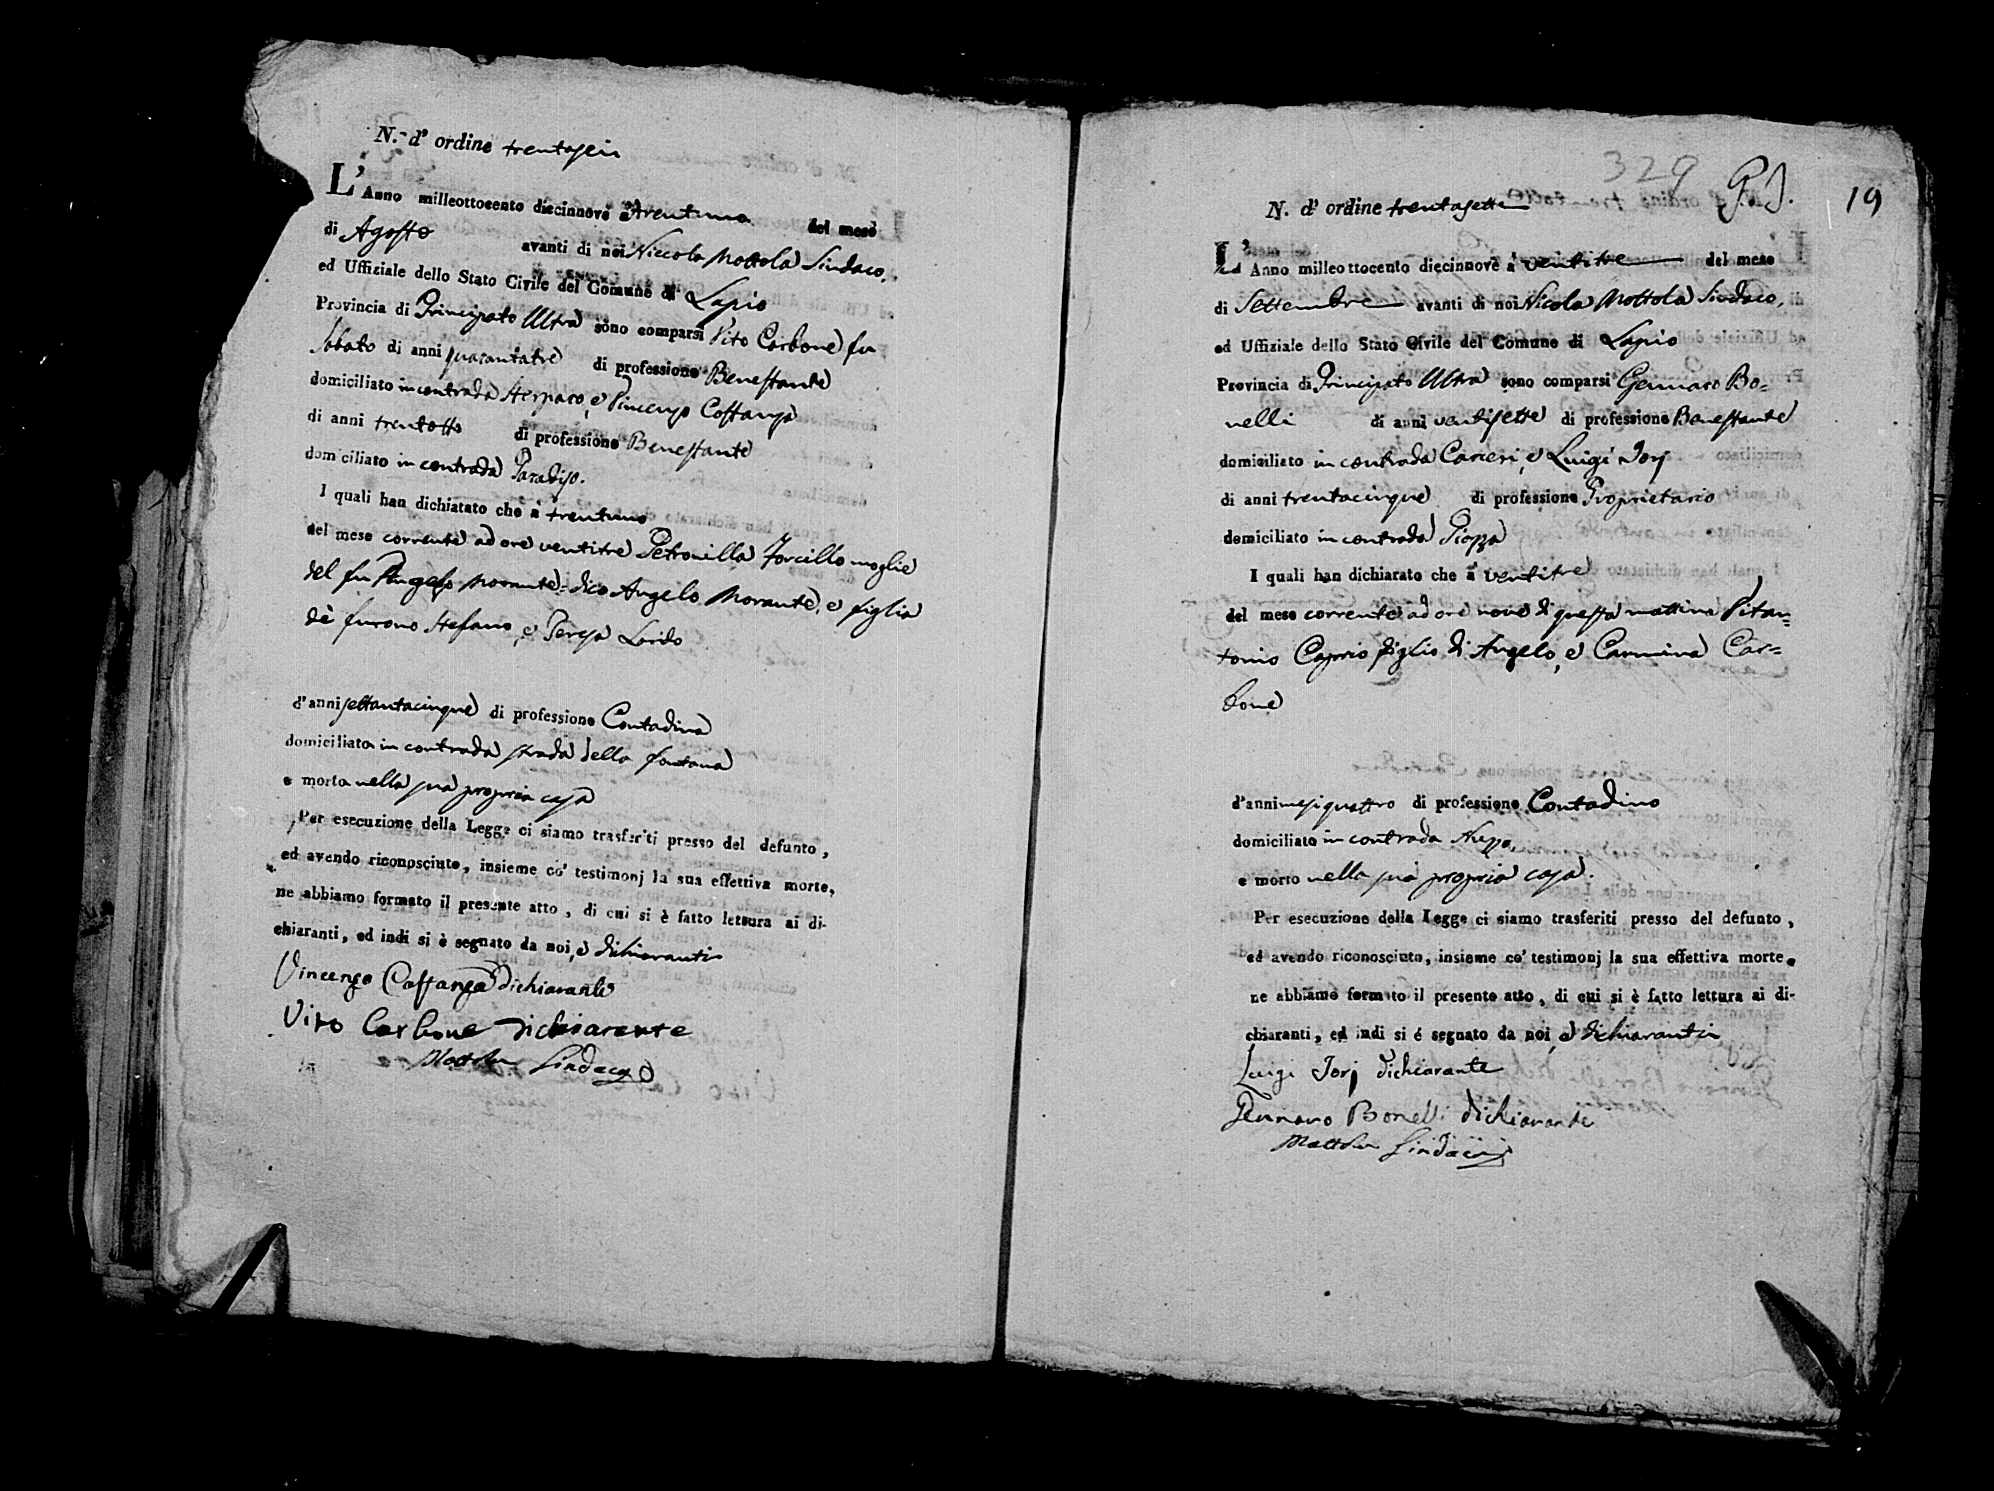 N.° d' ordine trentasei
L'Anno milleottocento diecinnove a' trentuno del mese
di Agosto avanti di noi Niccola Mottola Sindaco,
ed Uffiziale dello Stato Civile del Comune di Lapio
Provincia di Principato Ultra sono comparsi Vito Carbone fu
Sabato di anni quarantatre di professione Benestante
domiciliato in contrada e Vincenzo Costanza
di anni trentotto di professione Benestante
domiciliato in contrada Paradiso.
I quali han dichiatato che a' trentuno
del mese corrente ad ore ventitre Petronilla moglie
del fu Morante = dico Angelo Morante, e figlia
de' furono Stefano, e Teresa
d'anni settantacinque di professione Contadina
domiciliata in contrada strada della fontana
e morta nella sua propria casa
Per esecuzione della Legge ci siamo trasferiti presso del defunto,
ed avendo riconosciuto, insieme co' testimonj la sua effettiva morte,
ne abbiamo formato il presente atto, di cui si è fatto lettura ai di-
chiaranti, ed indi si è segnato da noi, e dichiaranti
Vincenzo Costanza dichiarante
Vito Carbone dichiarante
Mottola Sindaco
329 19
N. d' ordine trentasette
L'Anno milleottocento diecinnove a' ventitre del mese
di Settembre avanti di noi Nicola Mottola Sindaco,
ed Uffiziale dello Stato Civile del Comune di Lapio
Provincia di Principato Ultra sono comparsi Gennaro Bo=
nelli di anni ventisette di professione Benestante
domiciliato in contrada Carceri, e Luigi Jorj
di anni trentacinque di professione Proprietario
domiciliato in contrada Piazza
I quali han dichiarato che a' ventitre
del mese corrente ad ore nove di questa mattina Vitan=
tonio Caprio figlio di Angelo, e Carmina Car=
bone
d'anni mesi quattro di professione Contadino
domiciliato in contrada
e morto nella sua propria casa.
Per esecuzione della Legge ci siamo trasferiti presso del defunto,
ed avendo riconosciuto, insieme co' testimonj la sua effettiva morte,
ne abbiamo formato il presente atto, di cui si è fatto lettura ai di-
chiaranti, ed indi si é segnato da noi, e dichiaranti
Luigi Jorj dichiarante
Gennaro Bonelli dichiarante
Mottola Sindaco